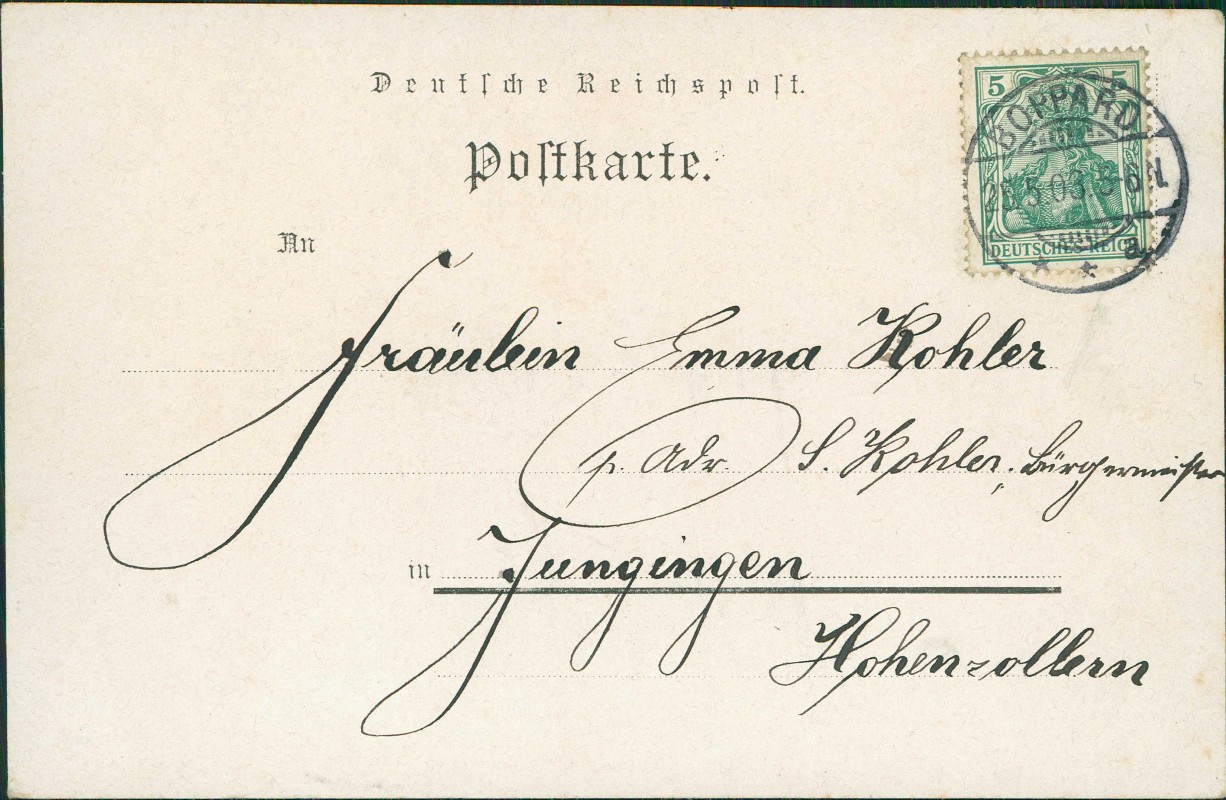 Deutsche Reichspost.
Postkarte.
5 5
BOPPARD
5 03
DEUTSCHES REICH
a
An
Fräulein Emma Kohler
p. Adr. S. Kohler, Bürgermeister
in Jungingen
Hohenzollern